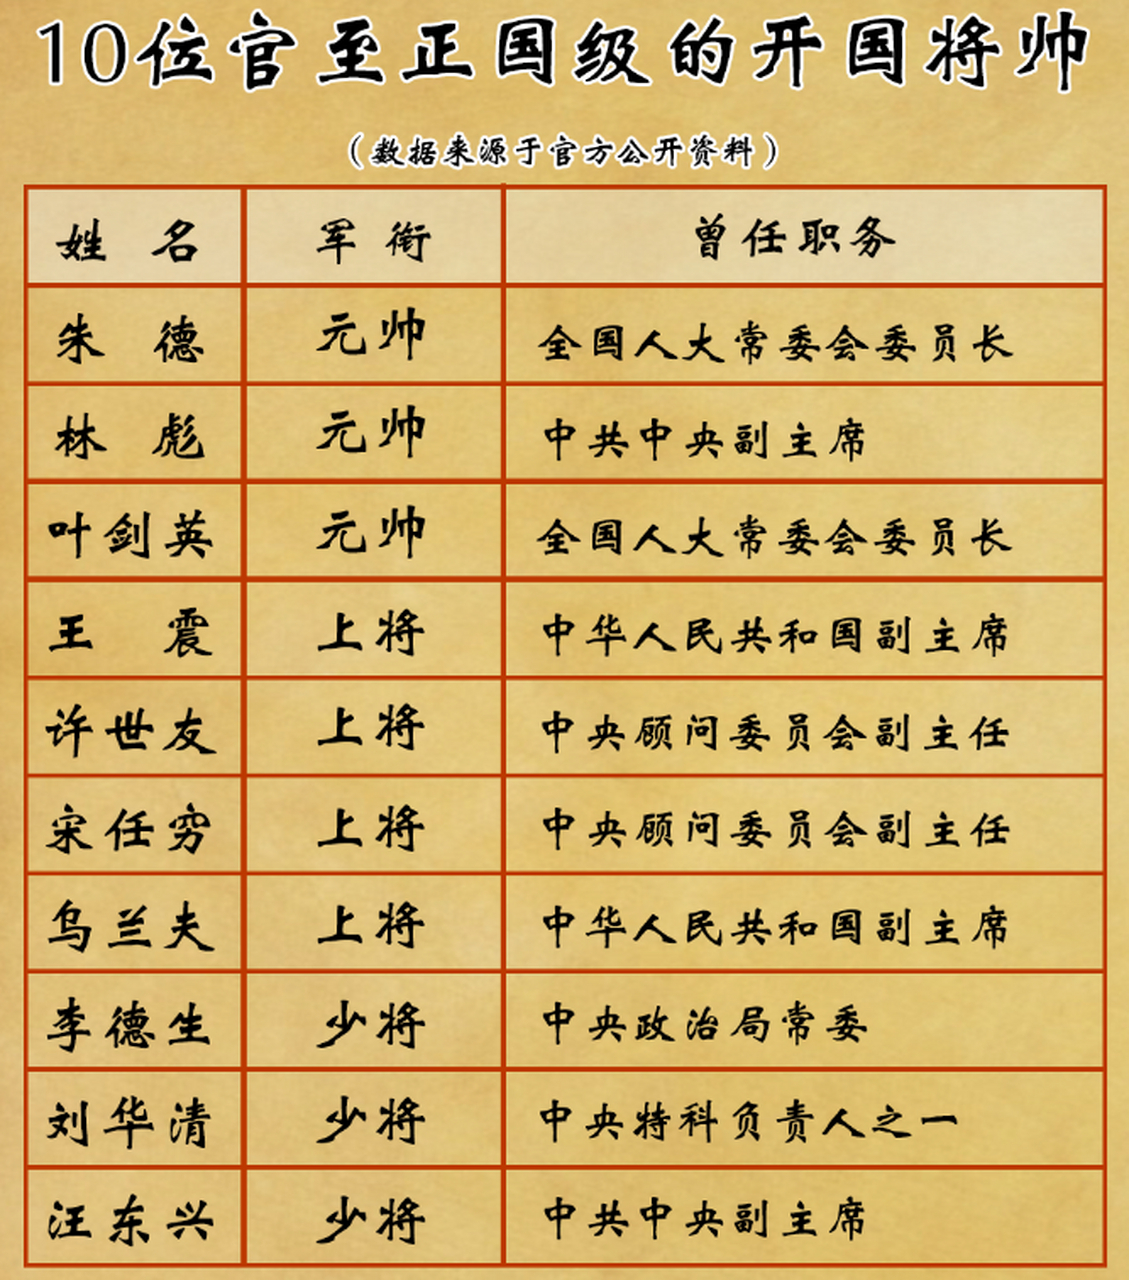 10位官至正国级的开国将帅
（数据来源于官方公开资料）
姓 名 军 衔 曾任职务
朱 德 元帅 全国人大常委会委员长
林 彪 元帅 中共中央副主席
叶剑英 元帅 全国人大常委会委员长
王 震 上将 中华人民共和国副主席
许世友 上将 中央顾问委员会副主任
宋任穷 上将 中央顾问委员会副主任
乌兰夫 上将 中华人民共和国副主席
李德生 少将 中央政治局常委
刘华清 少将 中央特科负责人之一
汪东兴 少将 中共中央副主席